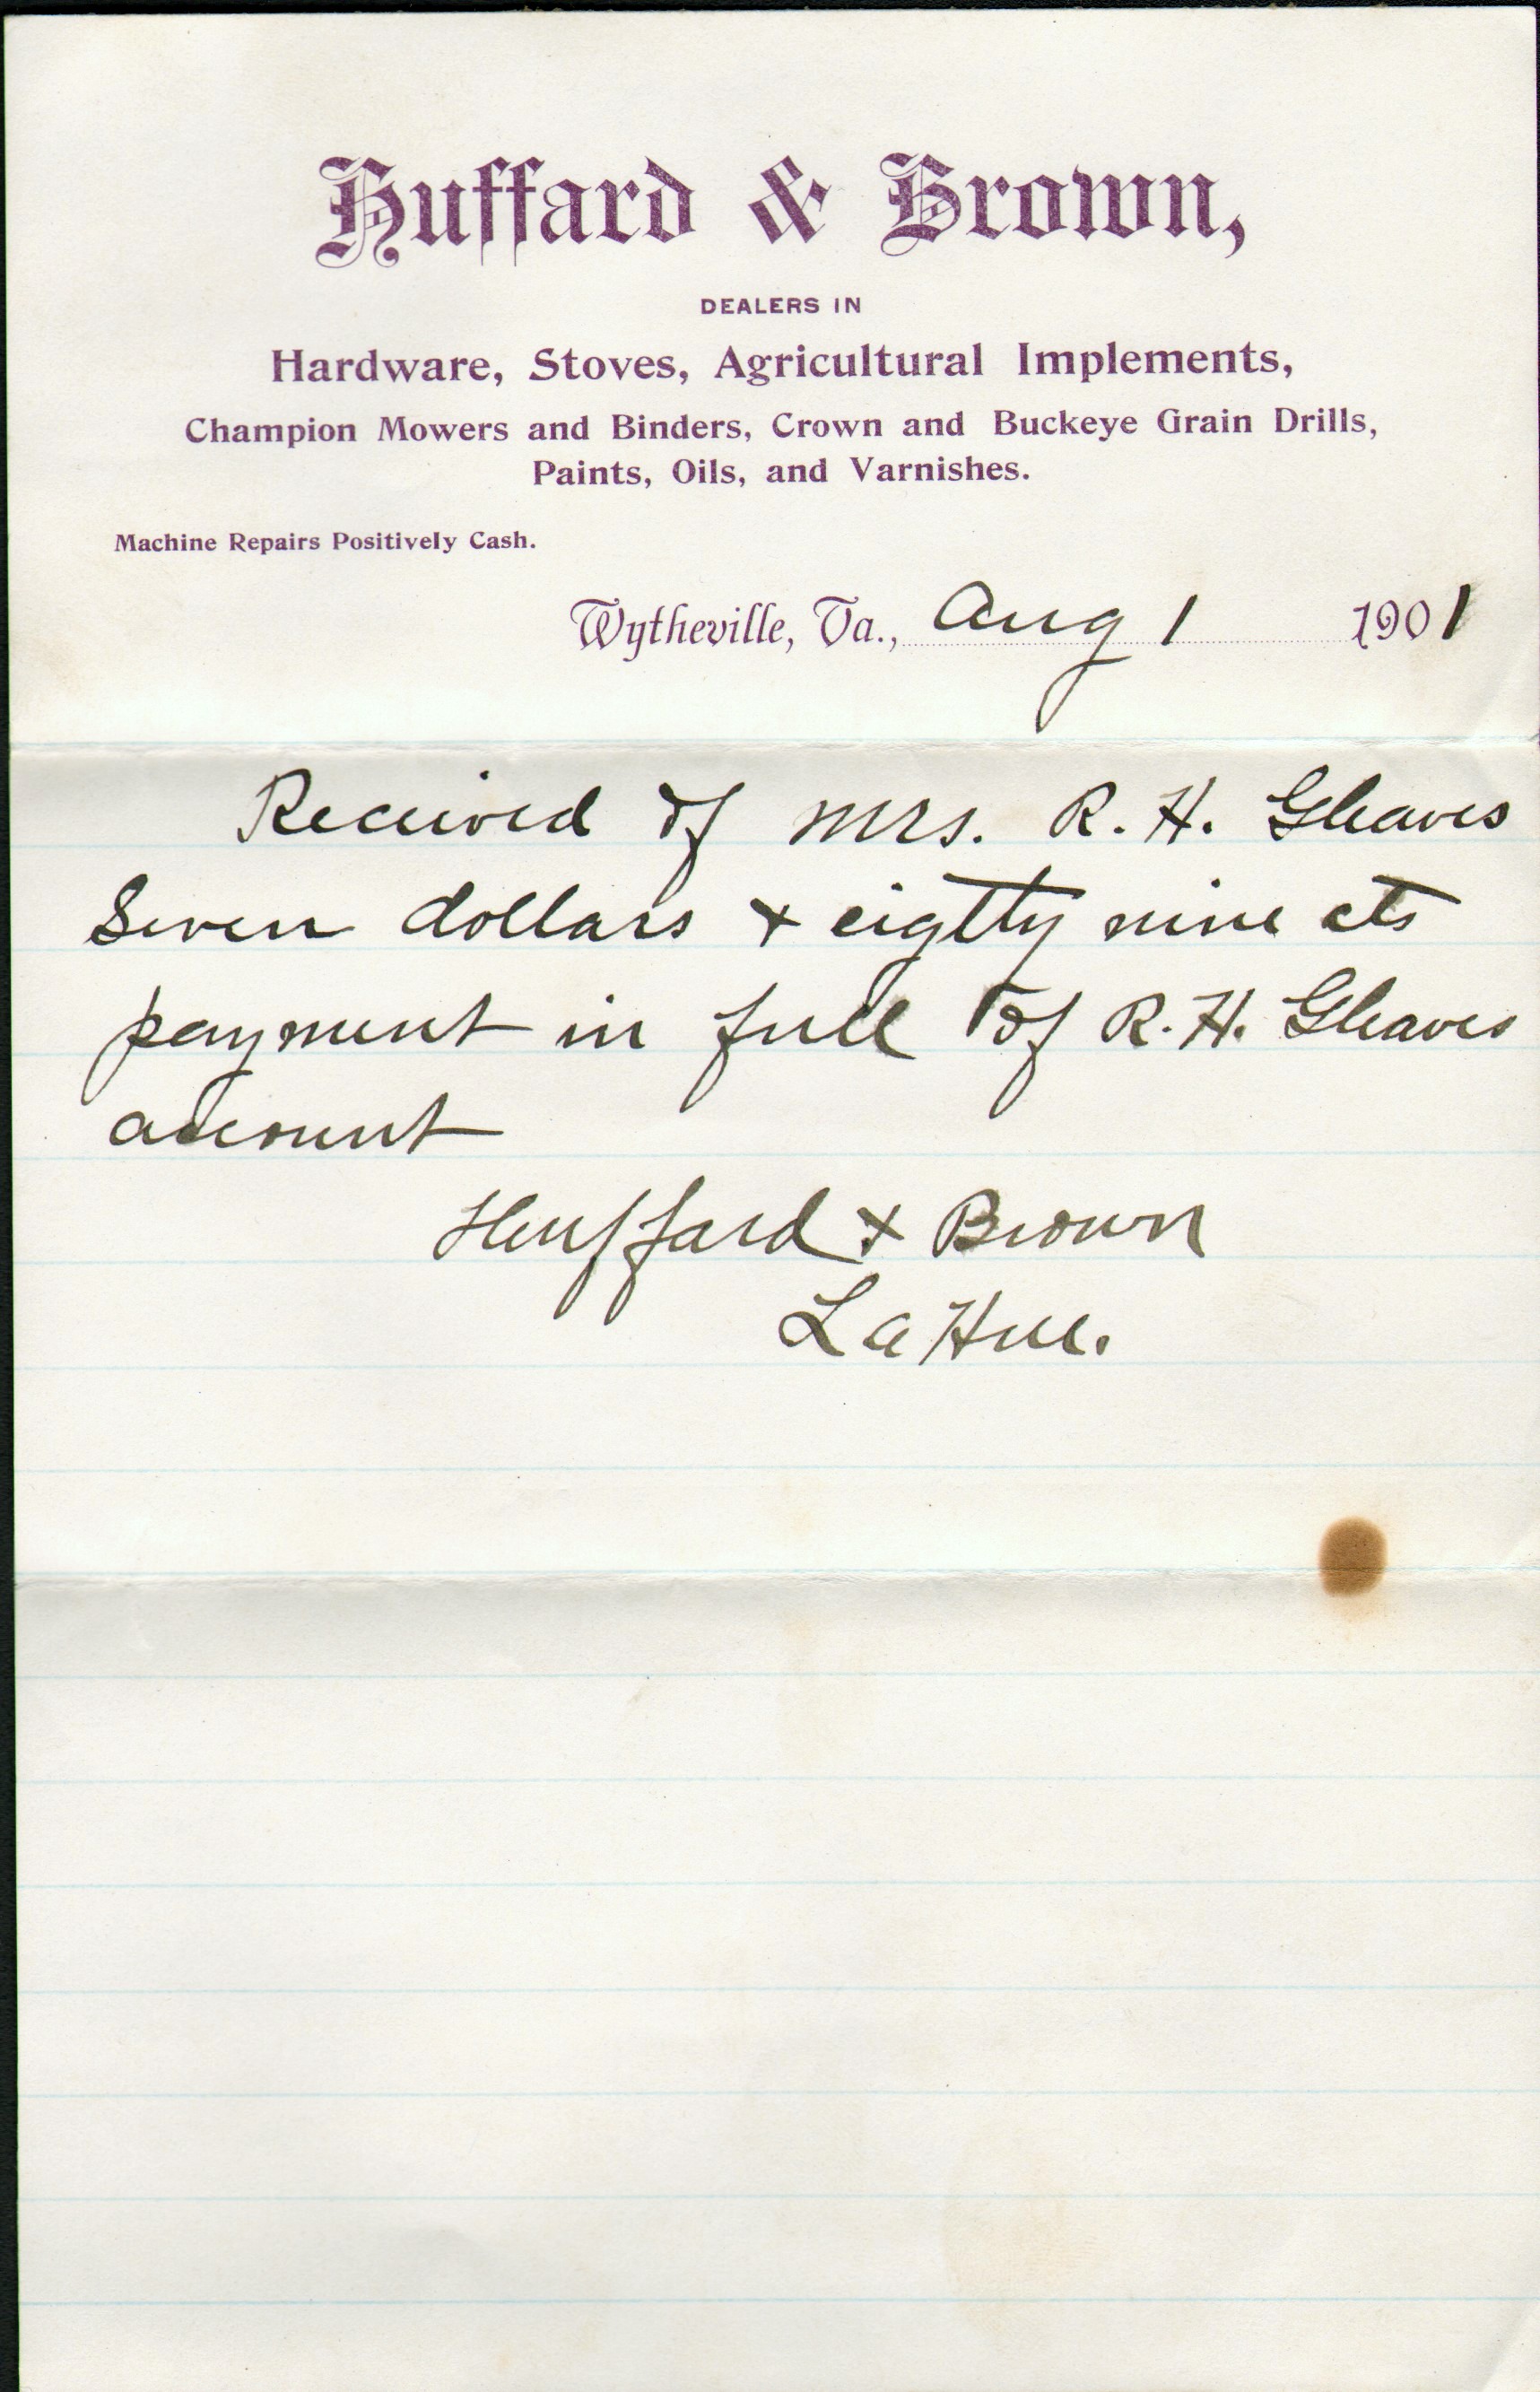 Huffard & Brown,
DEALERS IN
Hardware, Stoves, Agricultural Implements,
Champion Mowers and Binders, Crown and Buckeye Grain Drills,
Paints, Oils, and Varnishes.
Machine Repairs Positively Cash.
Wytheville, Va., Aug 1 1901
Received of Mrs. R. H. Gleaves
Seven dollars + eighty nine cts
payment in full of R. H. Gleaves
account
Huffard + Brown
La Hue.